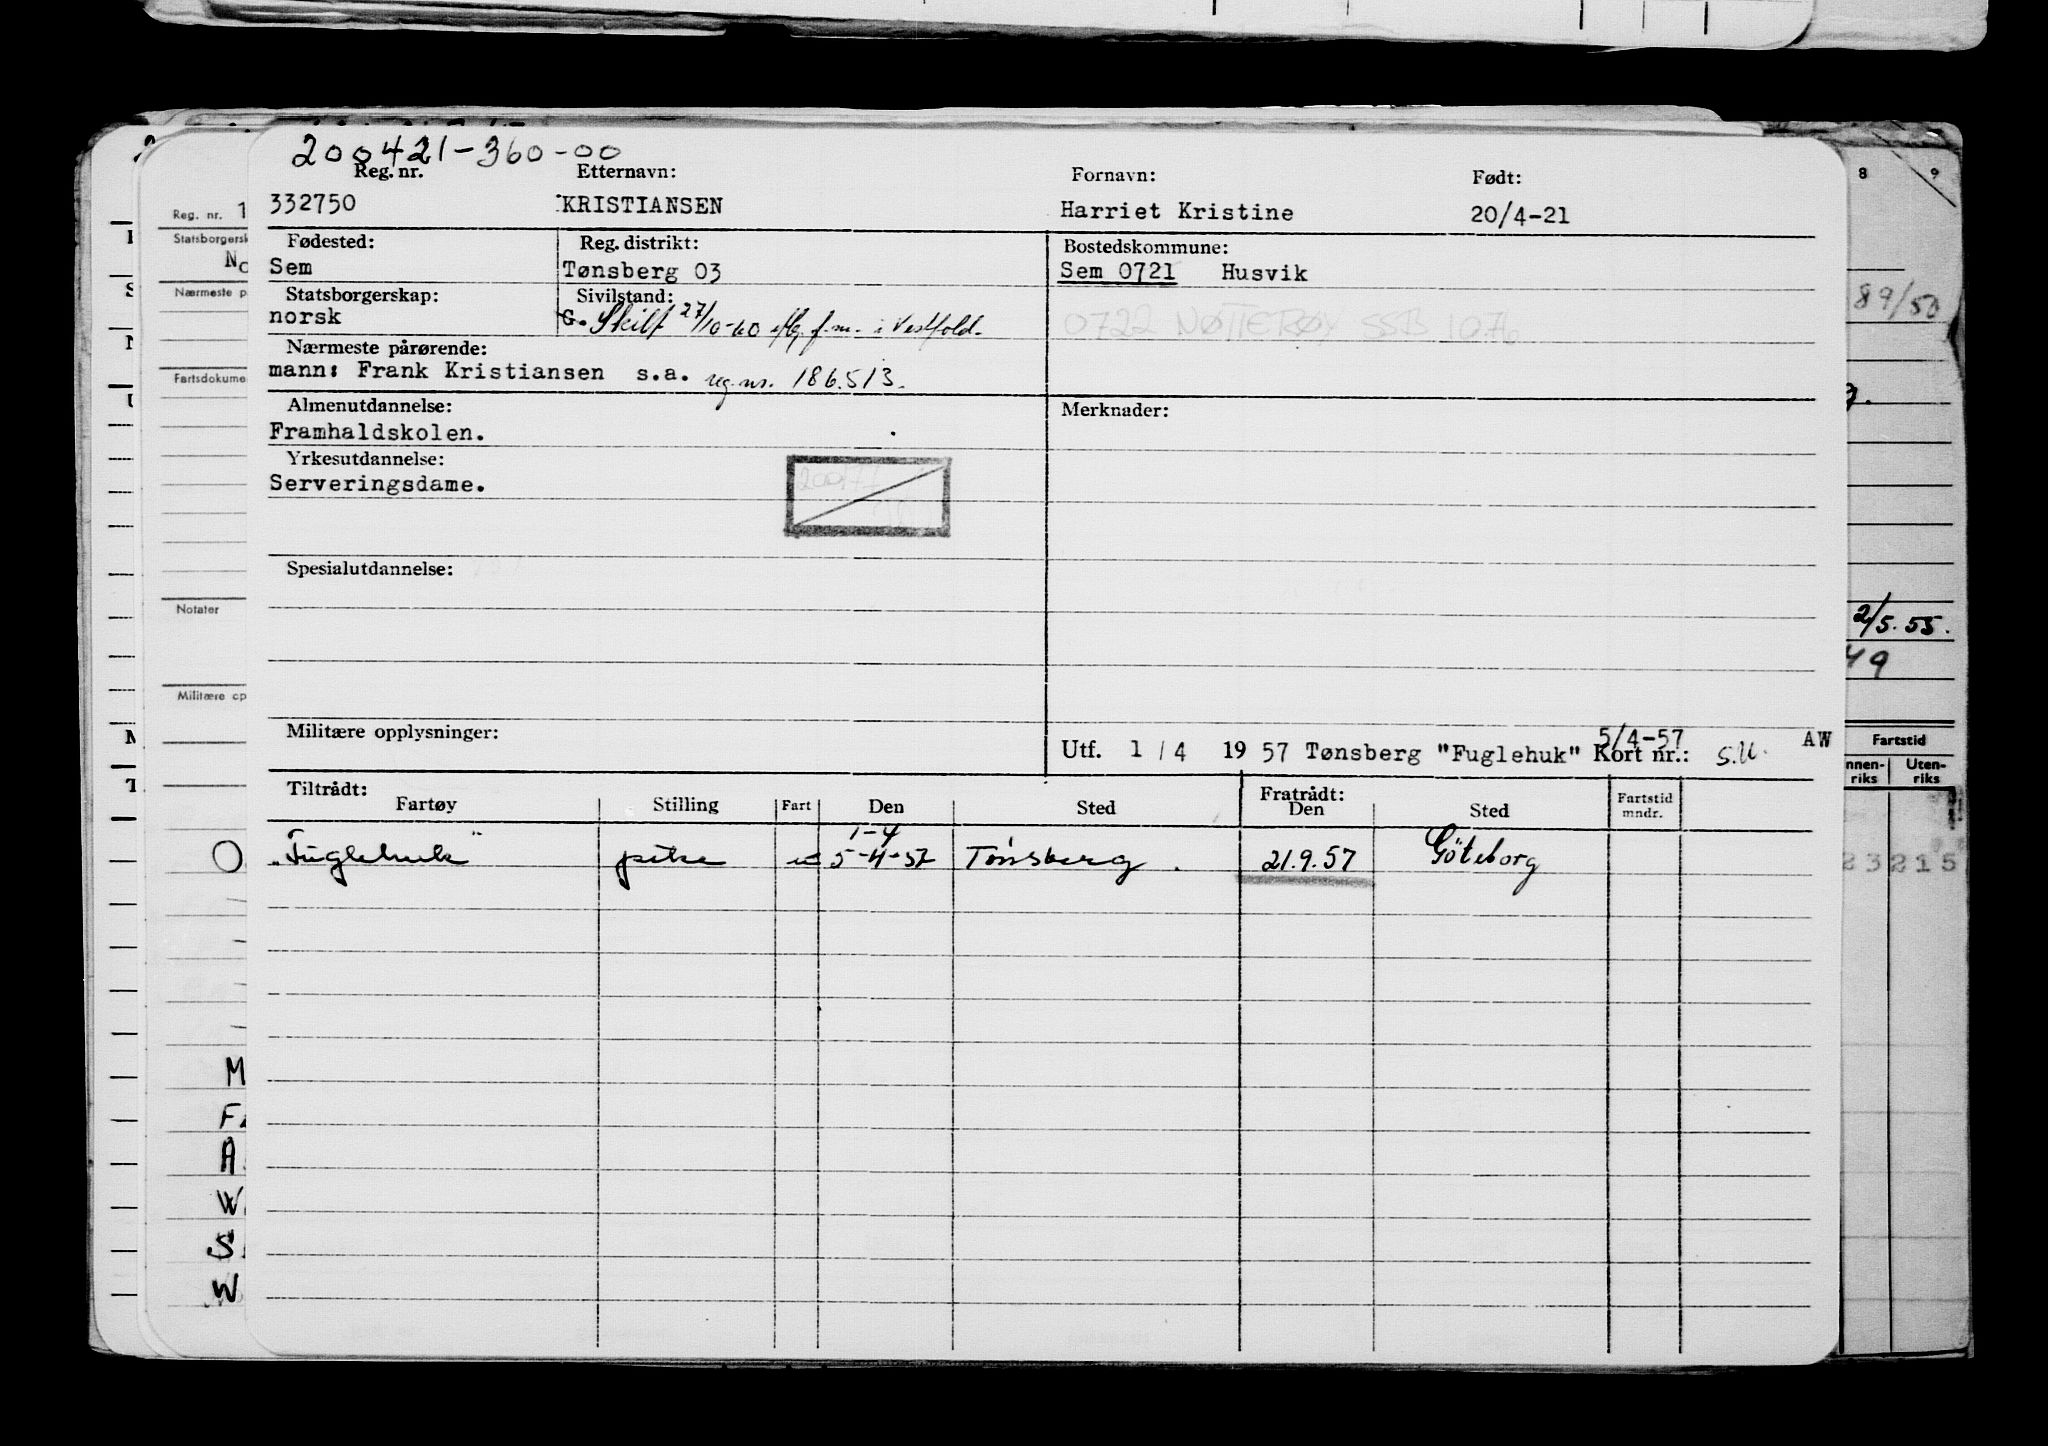 200421-360-00
Reg. nr. Etternavn: Fornavn: Født:
332750 KRISTIANSEN Harriet Kristine 20/4-21
Fødested: Reg. distrikt: Bostedskommune:
Sem Tønsberg 03 Sem 0721 Husvik
Statsborgerskap: Sivilstand:
norsk G. Skilt 27/10-60 f.m. i Vestfold.
0722 NØTTERØY SSB 10.76
Nærmeste pårørende:
mann: Frank Kristiansen s.a. reg.nr. 186.513.
Almenutdannelse: Merknader:
Framhaldskolen.
Yrkesutdannelse:
Serveringsdame.
Spesialutdannelse:
Militære opplysninger:
5/4-57
Utf. 1 / 4 19 57 Tønsberg "Fuglehuk" Kort nr.: S.U. AW
Tiltrådt: Fratrådt:
Fartøy Stilling Fart Den Sted Den Sted Fartstid
mndr.
1-4
"Fuglehuk" pike 5-4-57 Tønsberg. 21.9.57 Göteborg
Reg. nr. 1
Statsborgersk
No
Nærmeste på
Fartsdokume
Notater
Militære op
M
FA
A.
W.
S.
W
8 9
89/50
2/5.55.
49
Fartstid
nnen-
riks Uten-
riks
23215